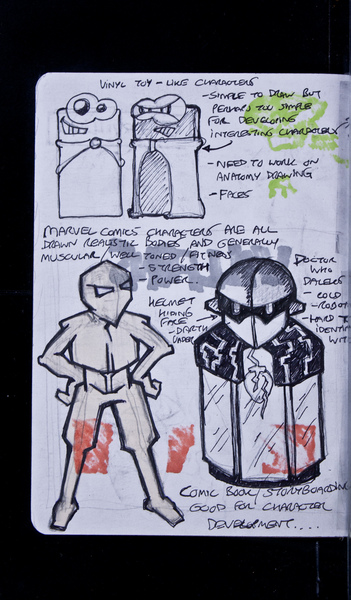 VINYL TOY - LIKE CHARACTERS
- SIMPLE TO DRAW BUT
PERHAPS TOO SIMPLE
FOR DEVELOPING
INTERESTING CHARACTERS
- NEED TO WORK ON
ANATOMY DRAWING
- FACES
MARVEL COMICS CHARACTERS ARE ALL
DRAWN REALISTIC BODIES AND GENERALLY
MUSCULAR / WELL TONED / FITNESS
- STRENGTH
- POWER.
HELMET
HIDING
FACE
- DARTH
VADER
DOCTOR
WHO
DALEKS
- COLD
- ROBOT
- HARD TO
IDENTI
WIT
COMIC BOOK / STORYBOARDING
GOOD FOR CHARACTER
DEVELOPMENT....